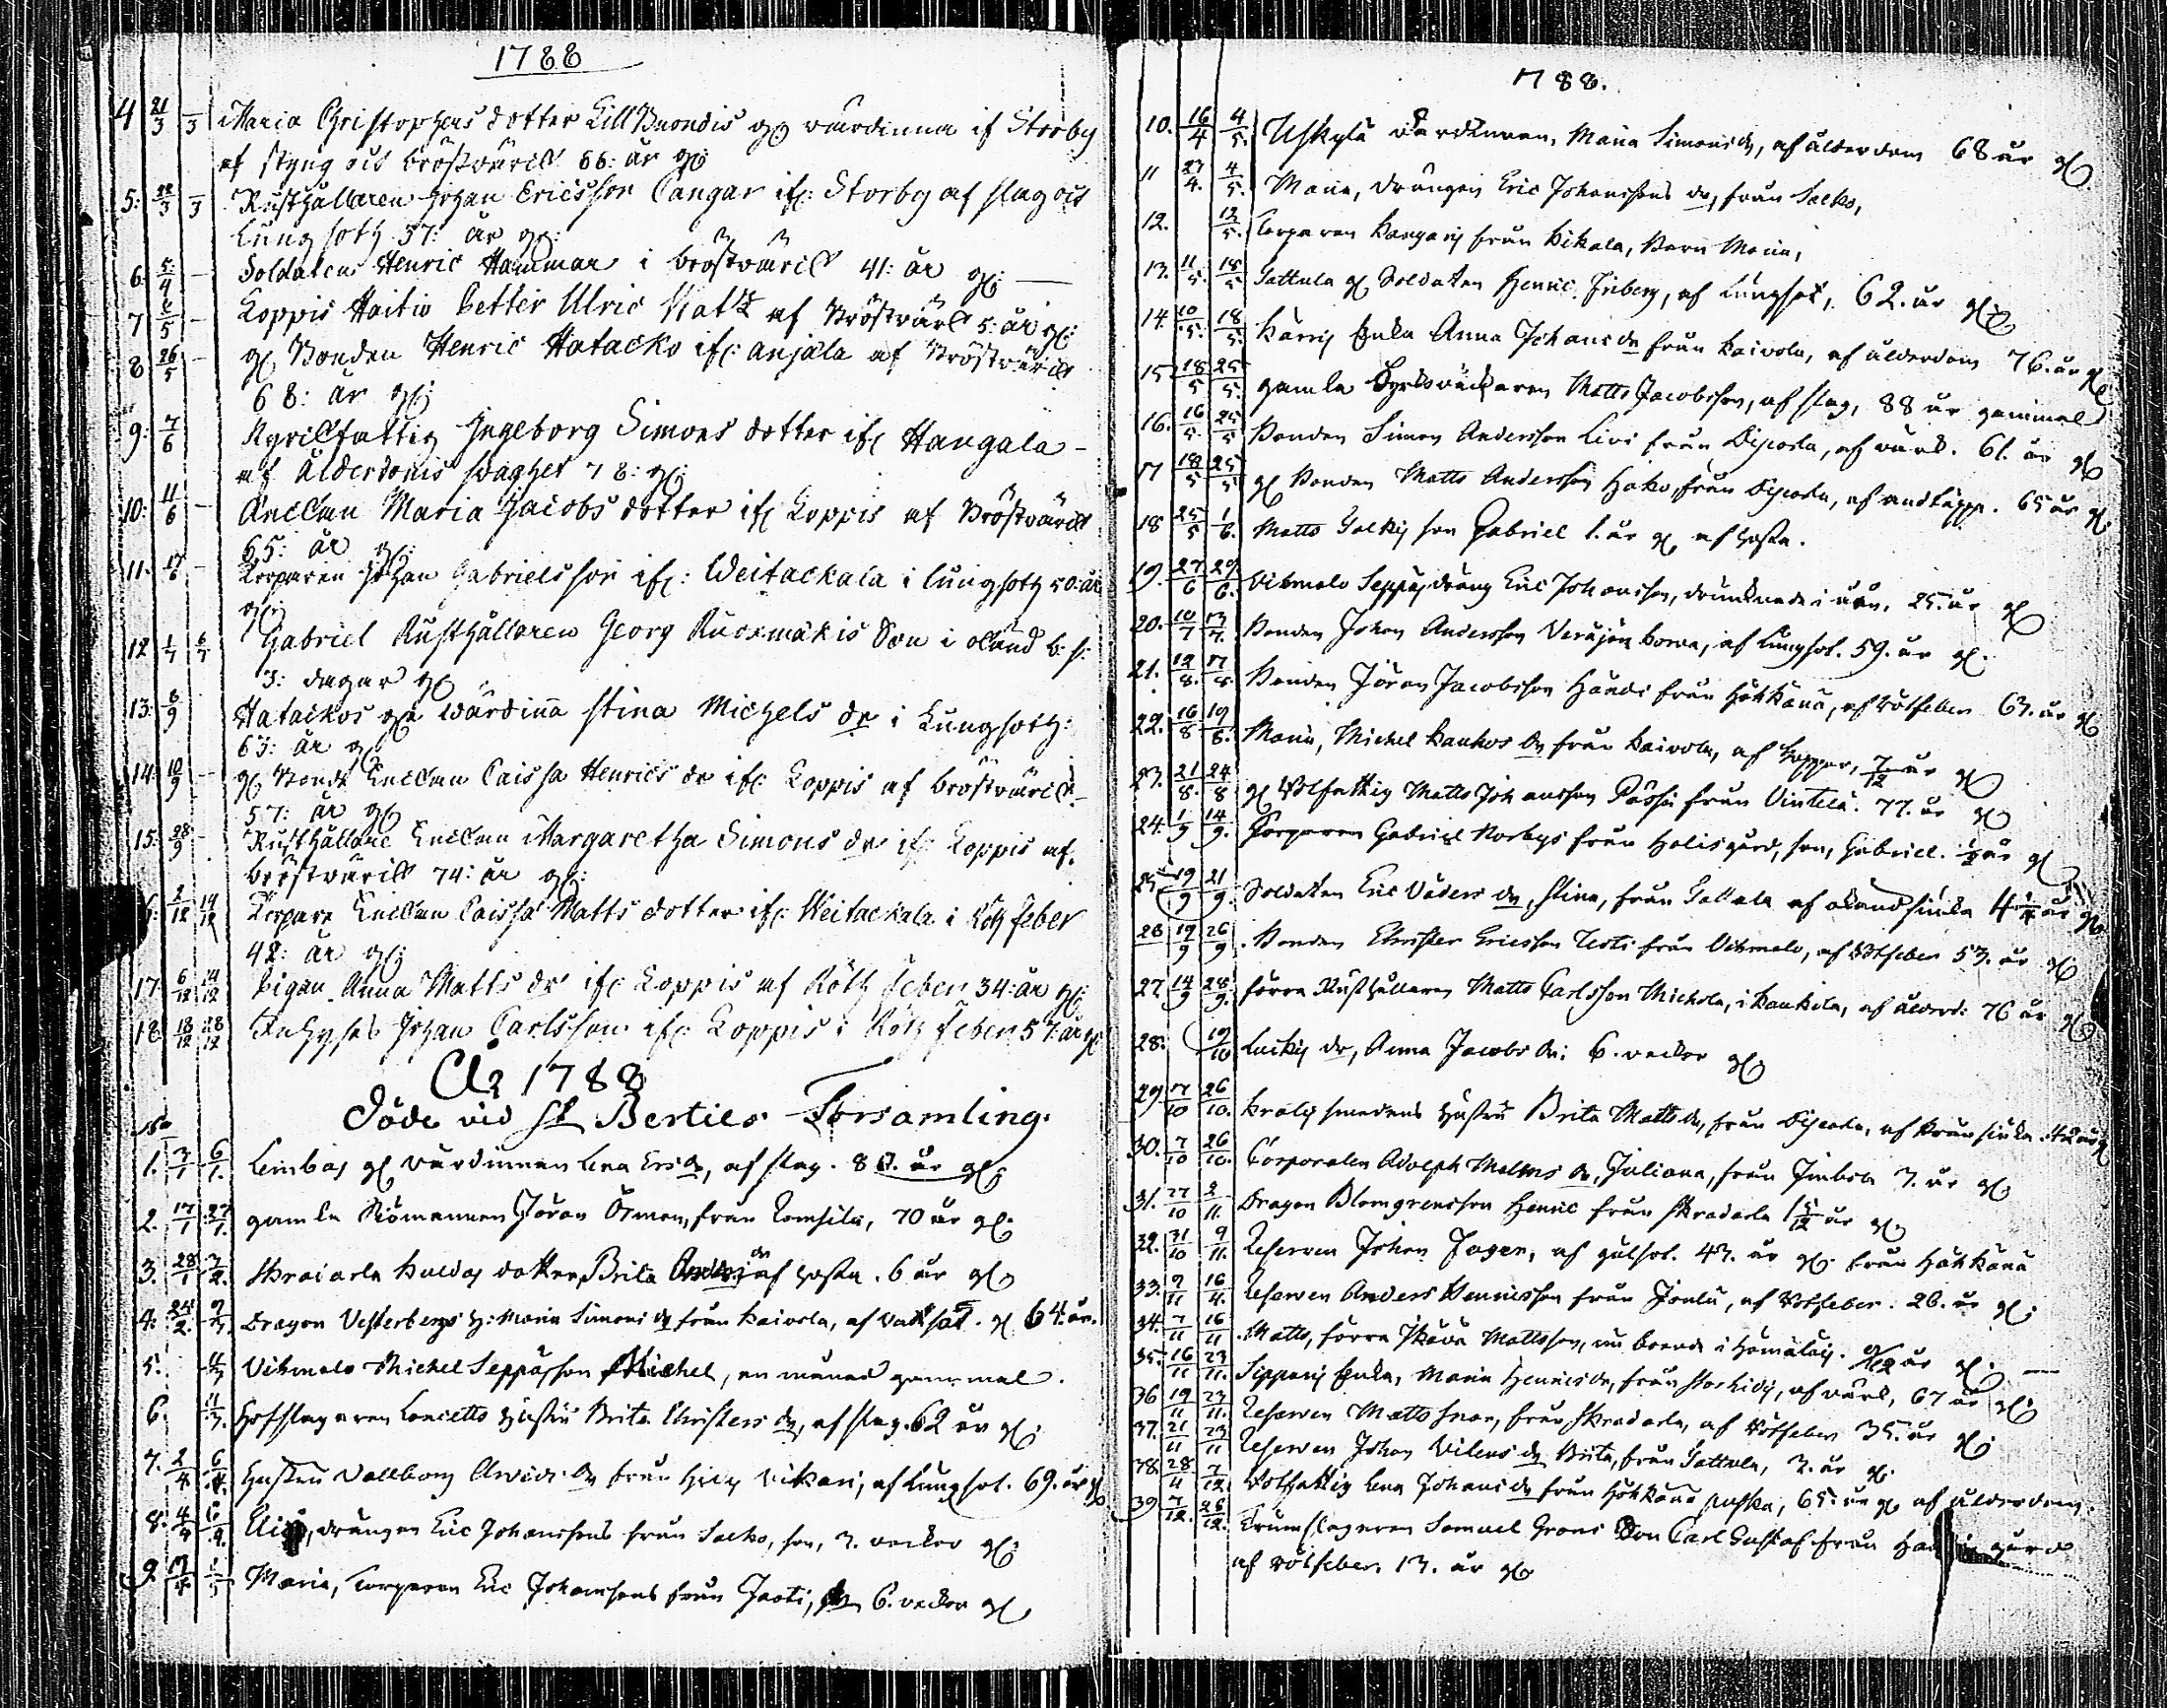 1788
4 21/3 /3 Maria Christophers dotter Lill Buondis gl wärdinna if Storby
af styng och bröstwärck 66: år gl:
5: 22/3 /3 Rusthållaren Johan Ericsson Cangar if: Storby af slag och
lungsoth 37: år gl:
6: 5/4 – Soldaten Henric Hammar i bröstwärck 41: år gl: —
7 6/5 – Koppis Haitio Petter Ulric Matts af Bröstwärck 5: år gl:
8 26/5 – gl Bonden Henric Hatacko if: anjala af Bröstwärck
68: år gl:
9: 7/6 Kyrckfattig Ingeborg Simons dotter if: Haugala –
af ålderdoms swaghet 78: gl:
10: 11/6 – Enckan Maria Jacobs dotter if: Koppis af Bröstwärck
65: år gl:
11. 17/6 – Torparen Johan Gabrielsson if: Weitackala i lungsoth 50: år
gl:
12 1/7 6/7 Gabriel Rusthållaren Georg Ruoxmäkis Son i okänd b: s:
3: dagar gl
13: 8/9 Hatackos gla wärdinna Stina Michels dr i Lungsoth:
63: år gl
14: 10/9 – gl Bonde Enckan Caissa Henrics dr if: Koppis af bröstwärck –
57: år gl
15: 28/9 – Rusthållare Enckan Margaretha Simons dr if: Koppis af
bröstwärck 74: år gl:
16: 2/12 14/12 Torpare Enckan Caissa Matts dotter if: Weitackala i Röth feber
42: år gl:
17: 6/12 14/12 Pigan Anna Matts dr if: Koppis af Röth feber 34: år gl:
18 18/12 28/12 Inhyses Johan Carlsson if: Koppis i Röth feber 57: år gl
Ao 1788
Döde vid St Bertils Församling.
No
1. 3/1 6/1. Leinbas gl värdinnan Lena Ersdr, af slag. 80. år gl:
2. 17/1 27/1. gamla Nämemannen Jöran Örmen, från Tomsilä, 70 år gl.
3. 28/1 3/2. Skraiarla Kuldas dotter, Brita af hosta. 6 år gl.
4. 24/2. 9/3. Dragon Vesterbergs h: Maria Simonsdr från Kaivola, af vattsot. gl 64. år.
5. 11/3 Vikmalo Michel Seppässon Michel, en månad gammal.
6. 11/3. Hofslagaren Loncetts hustru Brita Christersdr, af slag. 62 år gl.
7. 2/4 6/4. Hustru Vallborg Arvidsdr från Vikari, af lungsot. 69. år gl
8. 4/4 Eric, drängen Eric Johanssons från Salko, son, 3. veckor gl:
9 Maria, Torparen Eric Johanssons från Jaoti, dr 6. veckor gl.
1788.
10. 16/4 4/5. Uskylä värdinnan, Maria Simonsdr, af ålderdom 68 år gl.
11 27/4. 4/5. Maria, drängen Eric Johanssons dr, från Salko,
12. 12/5. Torparen Kangarij från Kikala, Barn Maria,
13. 11/5. 18/5 Tattula gl Soldaten Henric Friberg, af lungsot, 62. år gl.
14. 10/5. 18/5. Kärrij Enka Anna Johansdr från Kaivola, af ålderdom 76. år gl
15. 18/5 25/5. gamla Kyrkoväktaren Matts Jacobsson, af slag, 88 år gammal
16. 16/5. 25/5 Bonden Simon Andersson Livi från Dipoila, af värk. 61. år gl
17 18/5 25/5 gl Bonden Matts Andersson Hako, från Dipoila, af andtäppa. 65 år gl.
18 25/5 1/6. Matts Jalkij son Gabriel 1. år gl, af hosta.
19. 27/6 29/6. Vikmalo Seppäj dräng Eric Johansson, drunknade i ån, 25. år gl
20. 10/7 13/7. Bonden Johan Andersson Veräjän Korva, af lungsot. 59. år gl.
21. 12/8. 17/8. Bonden Jöran Jacobsson Händi från Hökkänä, af rötfeber 63. år gl
22. 16/8 19/8. Maria, Michel Kaukos dr från Kaivola, af koppor, 7/12 år gl
23. 21/8. 24/8 gl Rotfattig Matts Johansson Pässi från Vintilä. 77. år gl
24. 1/9 14/9. Torparen Gabriel Norbys från Halisgård, son, Gabriel. 1/2 år gl
25 19/9 21/9. Soldaten Eric Väders dr, Stina, från Tattula af okänd siuka 4 1/4 år gl
26 19/9 26/9. Bonden Christer Ericsson Testi från Vikmalo, af Rötfeber 53. år gl
27. 14/9 28/9. förra Rusthållaren Matts Carlsson Michola, i Kaukila, af ålderd: 76 år gl
28. 19/10 Luckij dr, Anna Jacobsdr: 6. veckor gl
29 17/10 26/10. Kralij smedens hustru Brita Mattsdr, från Dipoila, af siuka. 42 år gl
30. 7/10 26/10. Corporalen Adolph Malms dr, Juliana, från Junbola 3. år gl.
31. 27/10 2/11. Dragon Blomgrensson Henric från Skradarla 1 5/12 år gl.
32. 31/10 9/11. Reserven Johan Fager, af gulsot. 43. år gl. från Hökkänä
33. 9/11 16/11. Reserven Anders Henricsson från Jonlu, af Rotfeber. 26. år gl.
34. 7/11 16/11 Matts, förra Skäva Mattsson, nu boende i Hämäläij. år gl. —
35. 16/11 23/11. Sipparij Enka, Maria Henricsdr, från af värk, 67 år gl.
36 19/11 23/11. Reserven Matts Snar, från Skradarla, af Rötfeber 35. år gl.
37. 21/11 23/11 Reserven Johan Vilens dr Brita, från Tattula, 2. år gl.
38. 28/11 7/12. Rotfattig Lena Johansdr från Hökkänä 65. år gl af ålderdom.
39 7/12. 26/12. Trumslagaren Samuel Grans Son Carl Gustaf från
af rötfeber, 13. år gl.